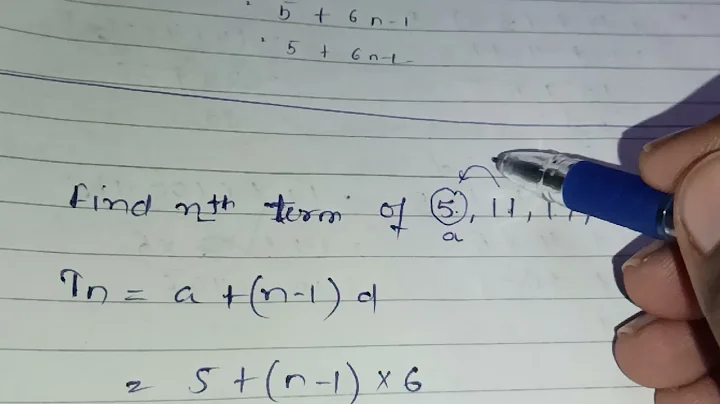 5 + 6n-1
5 + 6n-1
Find nth term of 5, 11, 
a
Tn = a + (n-1) d
= 5 + (n-1) × 6